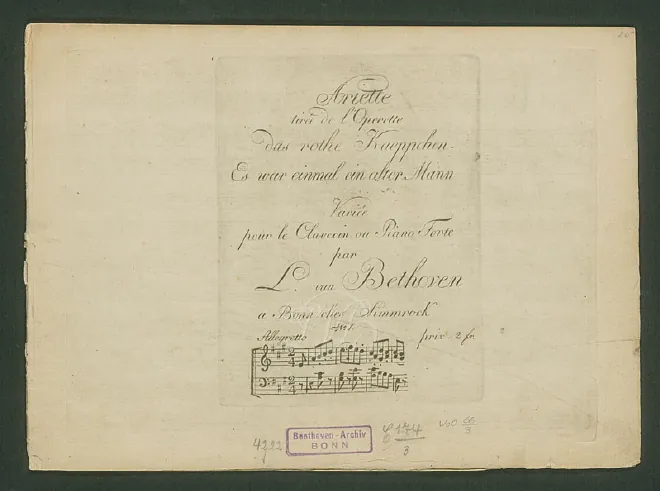 Ariette
tirée de l'Operette
das rothe Kaeppchen-
Es war einmal ein alter Mann
Varièe
pour le Clavecin ou Piano Forte
par
L. van Bethoven
a Bonn chez Simmrock
Allegretto
prix 2 fr
4292
Beethoven-Archiv
BONN
C 144
6 3
WoO 66
3